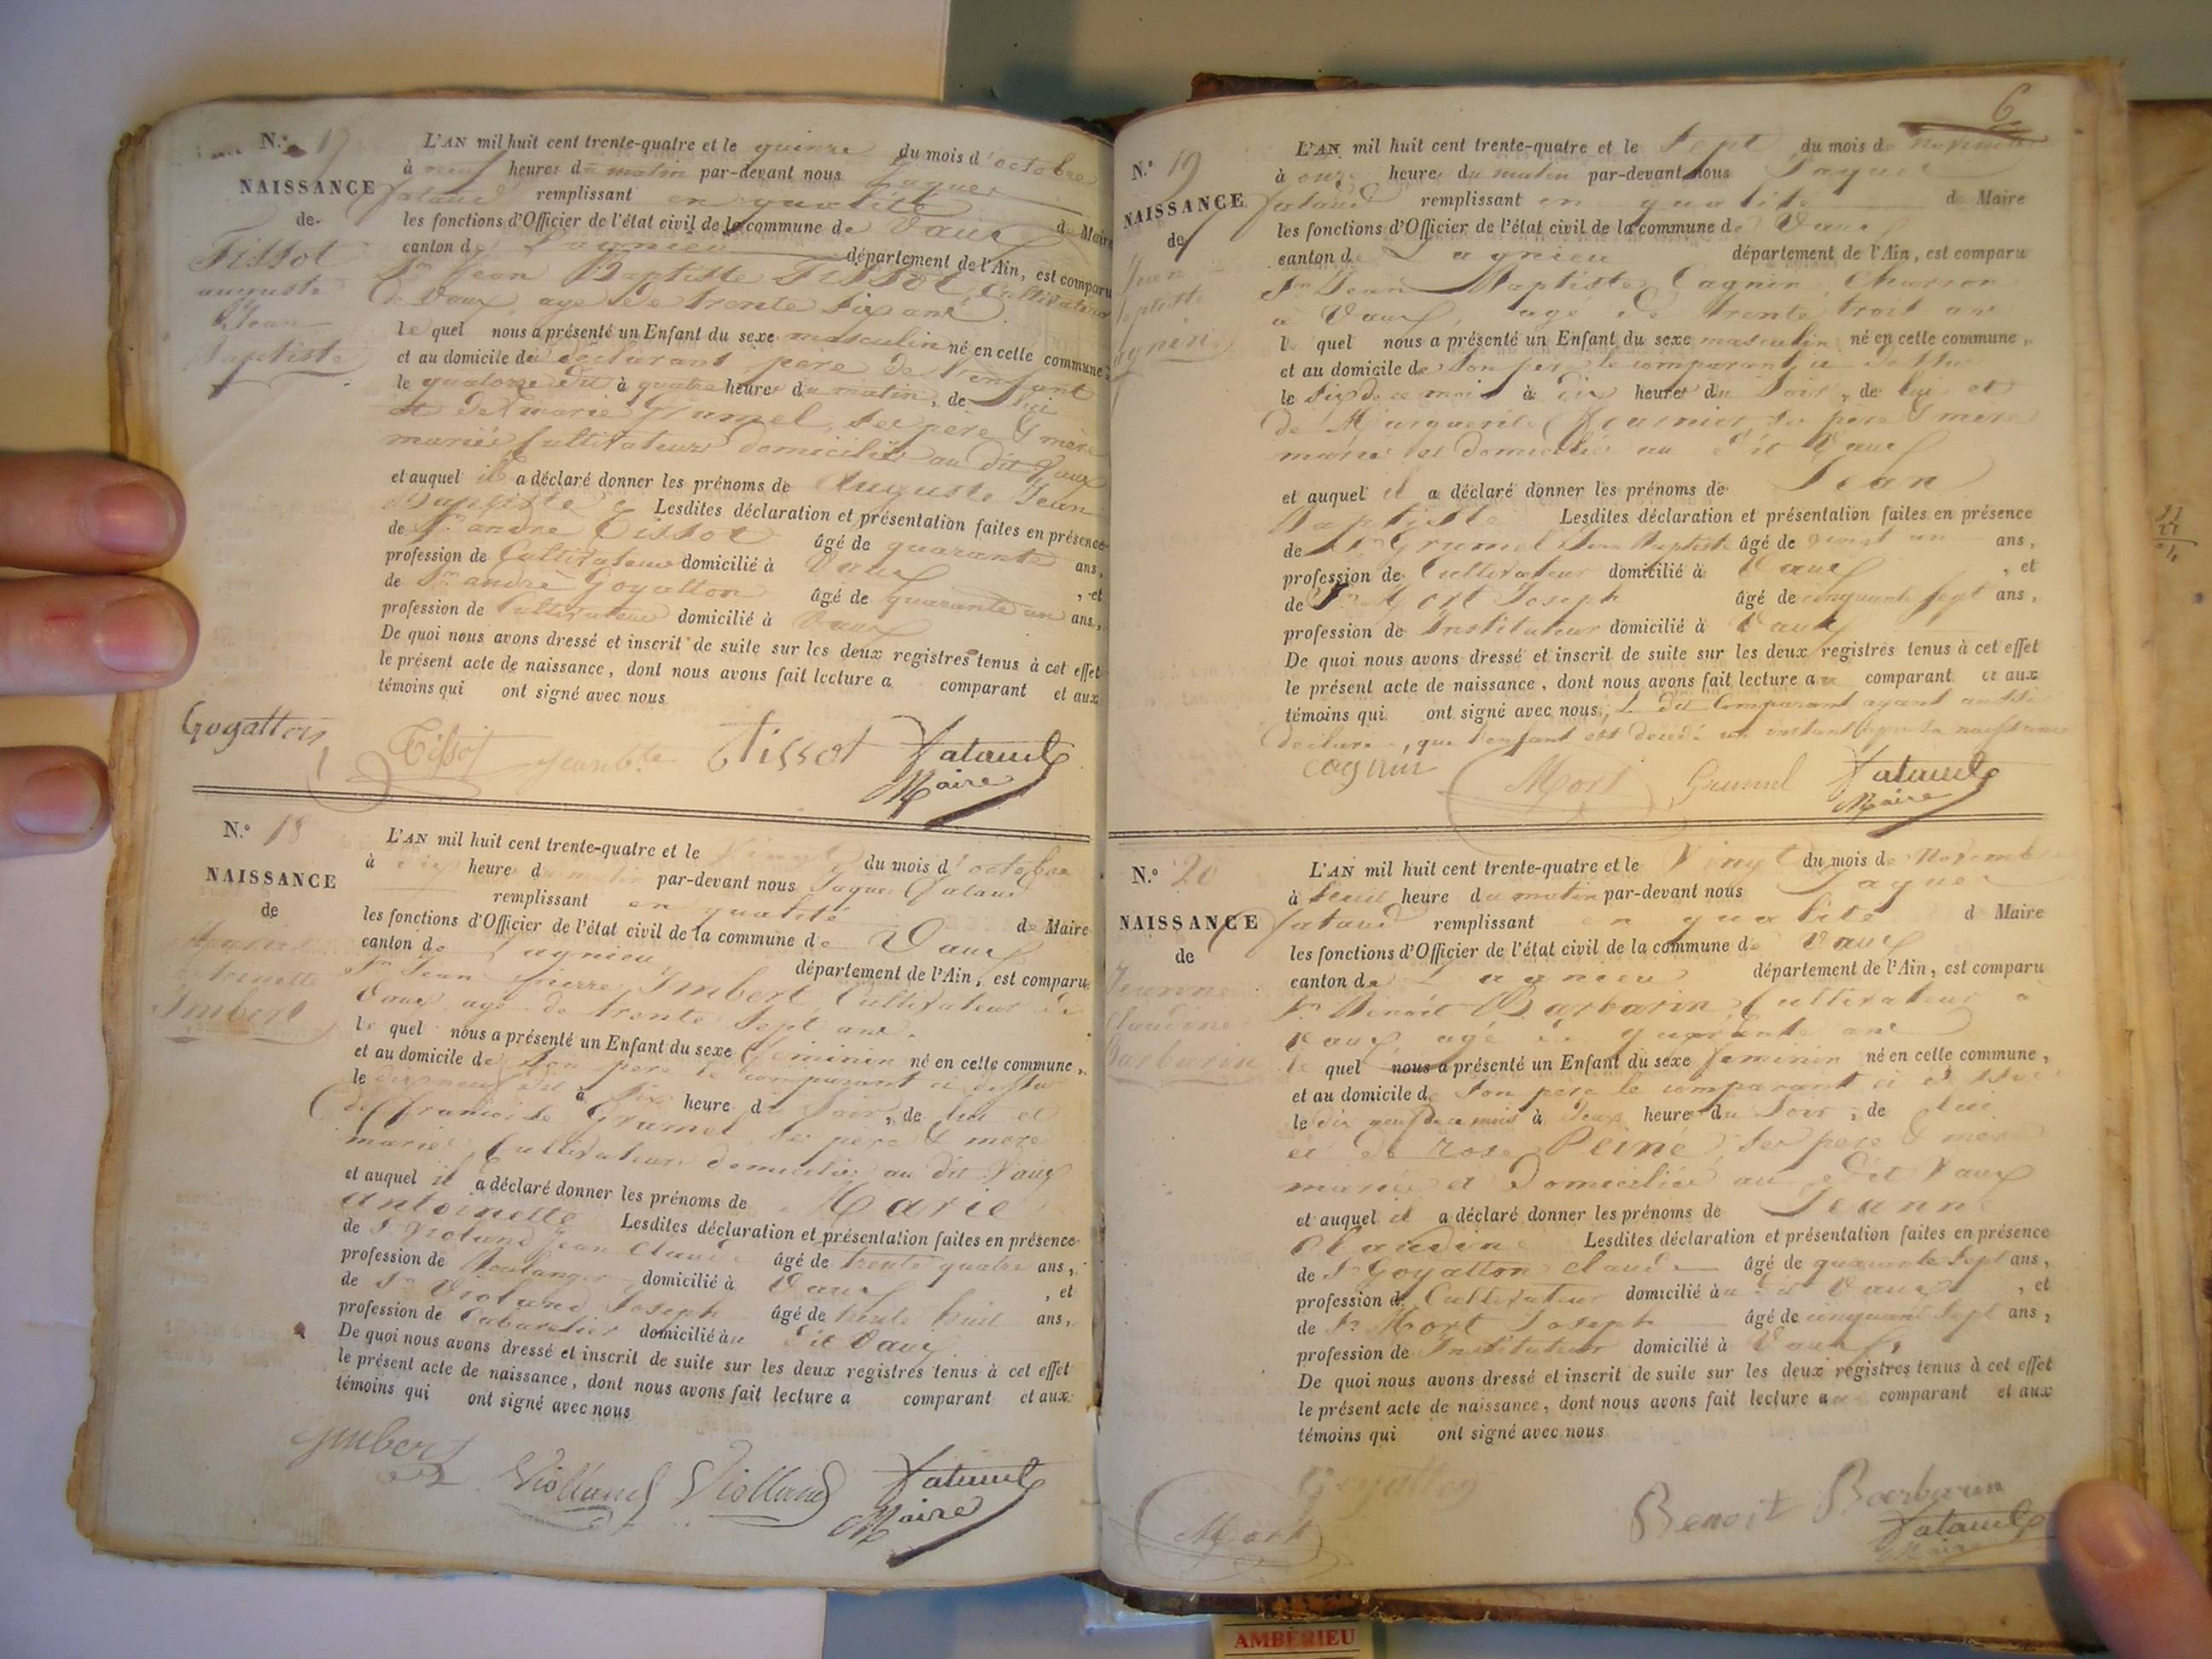 N.° 17
NAISSANCE
de
Tissot
auguste
Jean
Baptiste
L'AN mil huit cent trente-quatre et le quinze du mois d'octobre
à neuf heures du matin par-devant nous Jaques
fataud remplissant en qualité de Maire
les fonctions d'Officier de l'état civil de la commune de Vaux
canton de Lagnieu département de l'Ain, est comparu
Sr Jean Baptiste Tissot, Cultivateur
de Vaux, age de trente six ans
le quel nous a présenté un Enfant du sexe masculin né en cette commune,
et au domicile du déclarant père de l'enfant
le quatorze du à quatre heures du matin, de lui
et de marie Grumel, ses père & mère
mariés Cultivateurs domiciliés au dit Vaux
et auquel il a déclaré donner les prénoms de Auguste Jean
Baptiste Lesdites déclaration et présentation faites en présence
de Sr andré Tissot âgé de quarante ans,
profession de Cultivateur domicilié à Vaux, et
de Sr andré Goyatton âgé de quarante un ans,
profession de Cultivateur domicilié à Vaux
De quoi nous avons dressé et inscrit de suite sur les deux registres tenus à cet effet
le présent acte de naissance, dont nous avons fait lecture a comparant et aux
témoins qui ont signé avec nous
Goyatton Tissot jeanbte Tissot fataud
Maire
N.° 18
NAISSANCE
de
Marie
antoinette
Imbert
L'AN mil huit cent trente-quatre et le Vingt du mois d'octobre
à dix heure du matin par-devant nous Jaques fataud
remplissant en qualité de Maire
les fonctions d'Officier de l'état civil de la commune de Vaux
canton de Lagnieu département de l'Ain, est comparu
Sr Jean pierre Imbert, Cultivateur de
Vaux age de trente sept ans.
le quel nous a présenté un Enfant du sexe féminin né en cette commune,
et au domicile de son pere le comparant ci dessus
le dix neuf dit à six heure du soir, de lui et
de francoise Grumel ses père & mere
mariés Cultivateurs domiciliés au dit Vaux
et auquel il a déclaré donner les prénoms de Marie
antoinette Lesdites déclaration et présentation faites en présence
de Sr Violand Jean Claude âgé de trente quatre ans,
profession de Boulanger domicilié à Vaux, et
de Sr Violand Joseph âgé de trente huit ans,
profession de Cabaretier domicilié au dit Vaux
De quoi nous avons dressé et inscrit de suite sur les deux registres tenus à cet effet
le présent acte de naissance, dont nous avons fait lecture a comparant et aux
témoins qui ont signé avec nous
imbert Violland Violland fataud
Maire
6
N.° 19
NAISSANCE
de
Jean
Baptiste
Cagnin
L'AN mil huit cent trente-quatre et le sept du mois de novembre
à onze heures du matin par-devant nous Jaques
fataud remplissant en qualité de Maire
les fonctions d'Officier de l'état civil de la commune de Vaux
canton de Lagnieu département de l'Ain, est comparu
Sr Jean Baptiste Cagnin, Charron
à Vaux, agé de trente trois ans
le quel nous a présenté un Enfant du sexe masculin né en cette commune,
et au domicile de son pere le comparant ci dessus
le six de ce mois à dix heures du soir, de lui et
de Marguerite fournier, ses père & mere
mariés et domiciliés au dit Vaux
et auquel il a déclaré donner les prénoms de Jean
Baptiste Lesdites déclaration et présentation faites en présence
de Sr Grumel Jean Baptiste âgé de vingt un ans,
profession de Cultivateur domicilié à Vaux, et
de Sr Mort Joseph âgé de cinquante sept ans,
profession de Instituteur domicilié à Vaux
De quoi nous avons dressé et inscrit de suite sur les deux registres tenus à cet effet
le présent acte de naissance, dont nous avons fait lecture au comparant et aux
témoins qui ont signé avec nous; Le dit Comparant ayant aussi
declaré, que l'enfant est decedé un instant après sa naissance
cagnin Mort Grumel fataud
Maire
N.° 20
NAISSANCE
de
Jeanne
Claudine
Barbarin
L'AN mil huit cent trente-quatre et le Vingt du mois de Novembre
à heure du matin par-devant nous Jaques
fataud remplissant en qualité d Maire
les fonctions d'Officier de l'état civil de la commune de Vaux
canton de Lagnieu département de l'Ain, est comparu
Sr Benoit Barbarin, Cultivateur a
Vaux, agé de quarante ans
le quel nous a présenté un Enfant du sexe feminin né en cette commune,
et au domicile de son père le comparant ci dessus
le dix neuf de ce mois à deux heures du soir, de lui
et de Rose Perne, ses pere & mere
mariés et Domiciliés au dit Vaux
et auquel il a déclaré donner les prénoms de Jeanne
Claudine Lesdites déclaration et présentation faites en présence
de Sr Goyatton claude âgé de quarante sept ans,
profession de Cultivateur domicilié au dit Vaux, et
de Sr Mort Joseph âgé de cinquante sept ans,
profession de Instituteur domicilié à Vaux,
De quoi nous avons dressé et inscrit de suite sur les deux registres tenus à cet effet
le présent acte de naissance, dont nous avons fait lecture au comparant et aux
témoins qui ont signé avec nous
Goyatton
Mort Benoit Barbarin
fataud
Maire
AMBÉRIEU